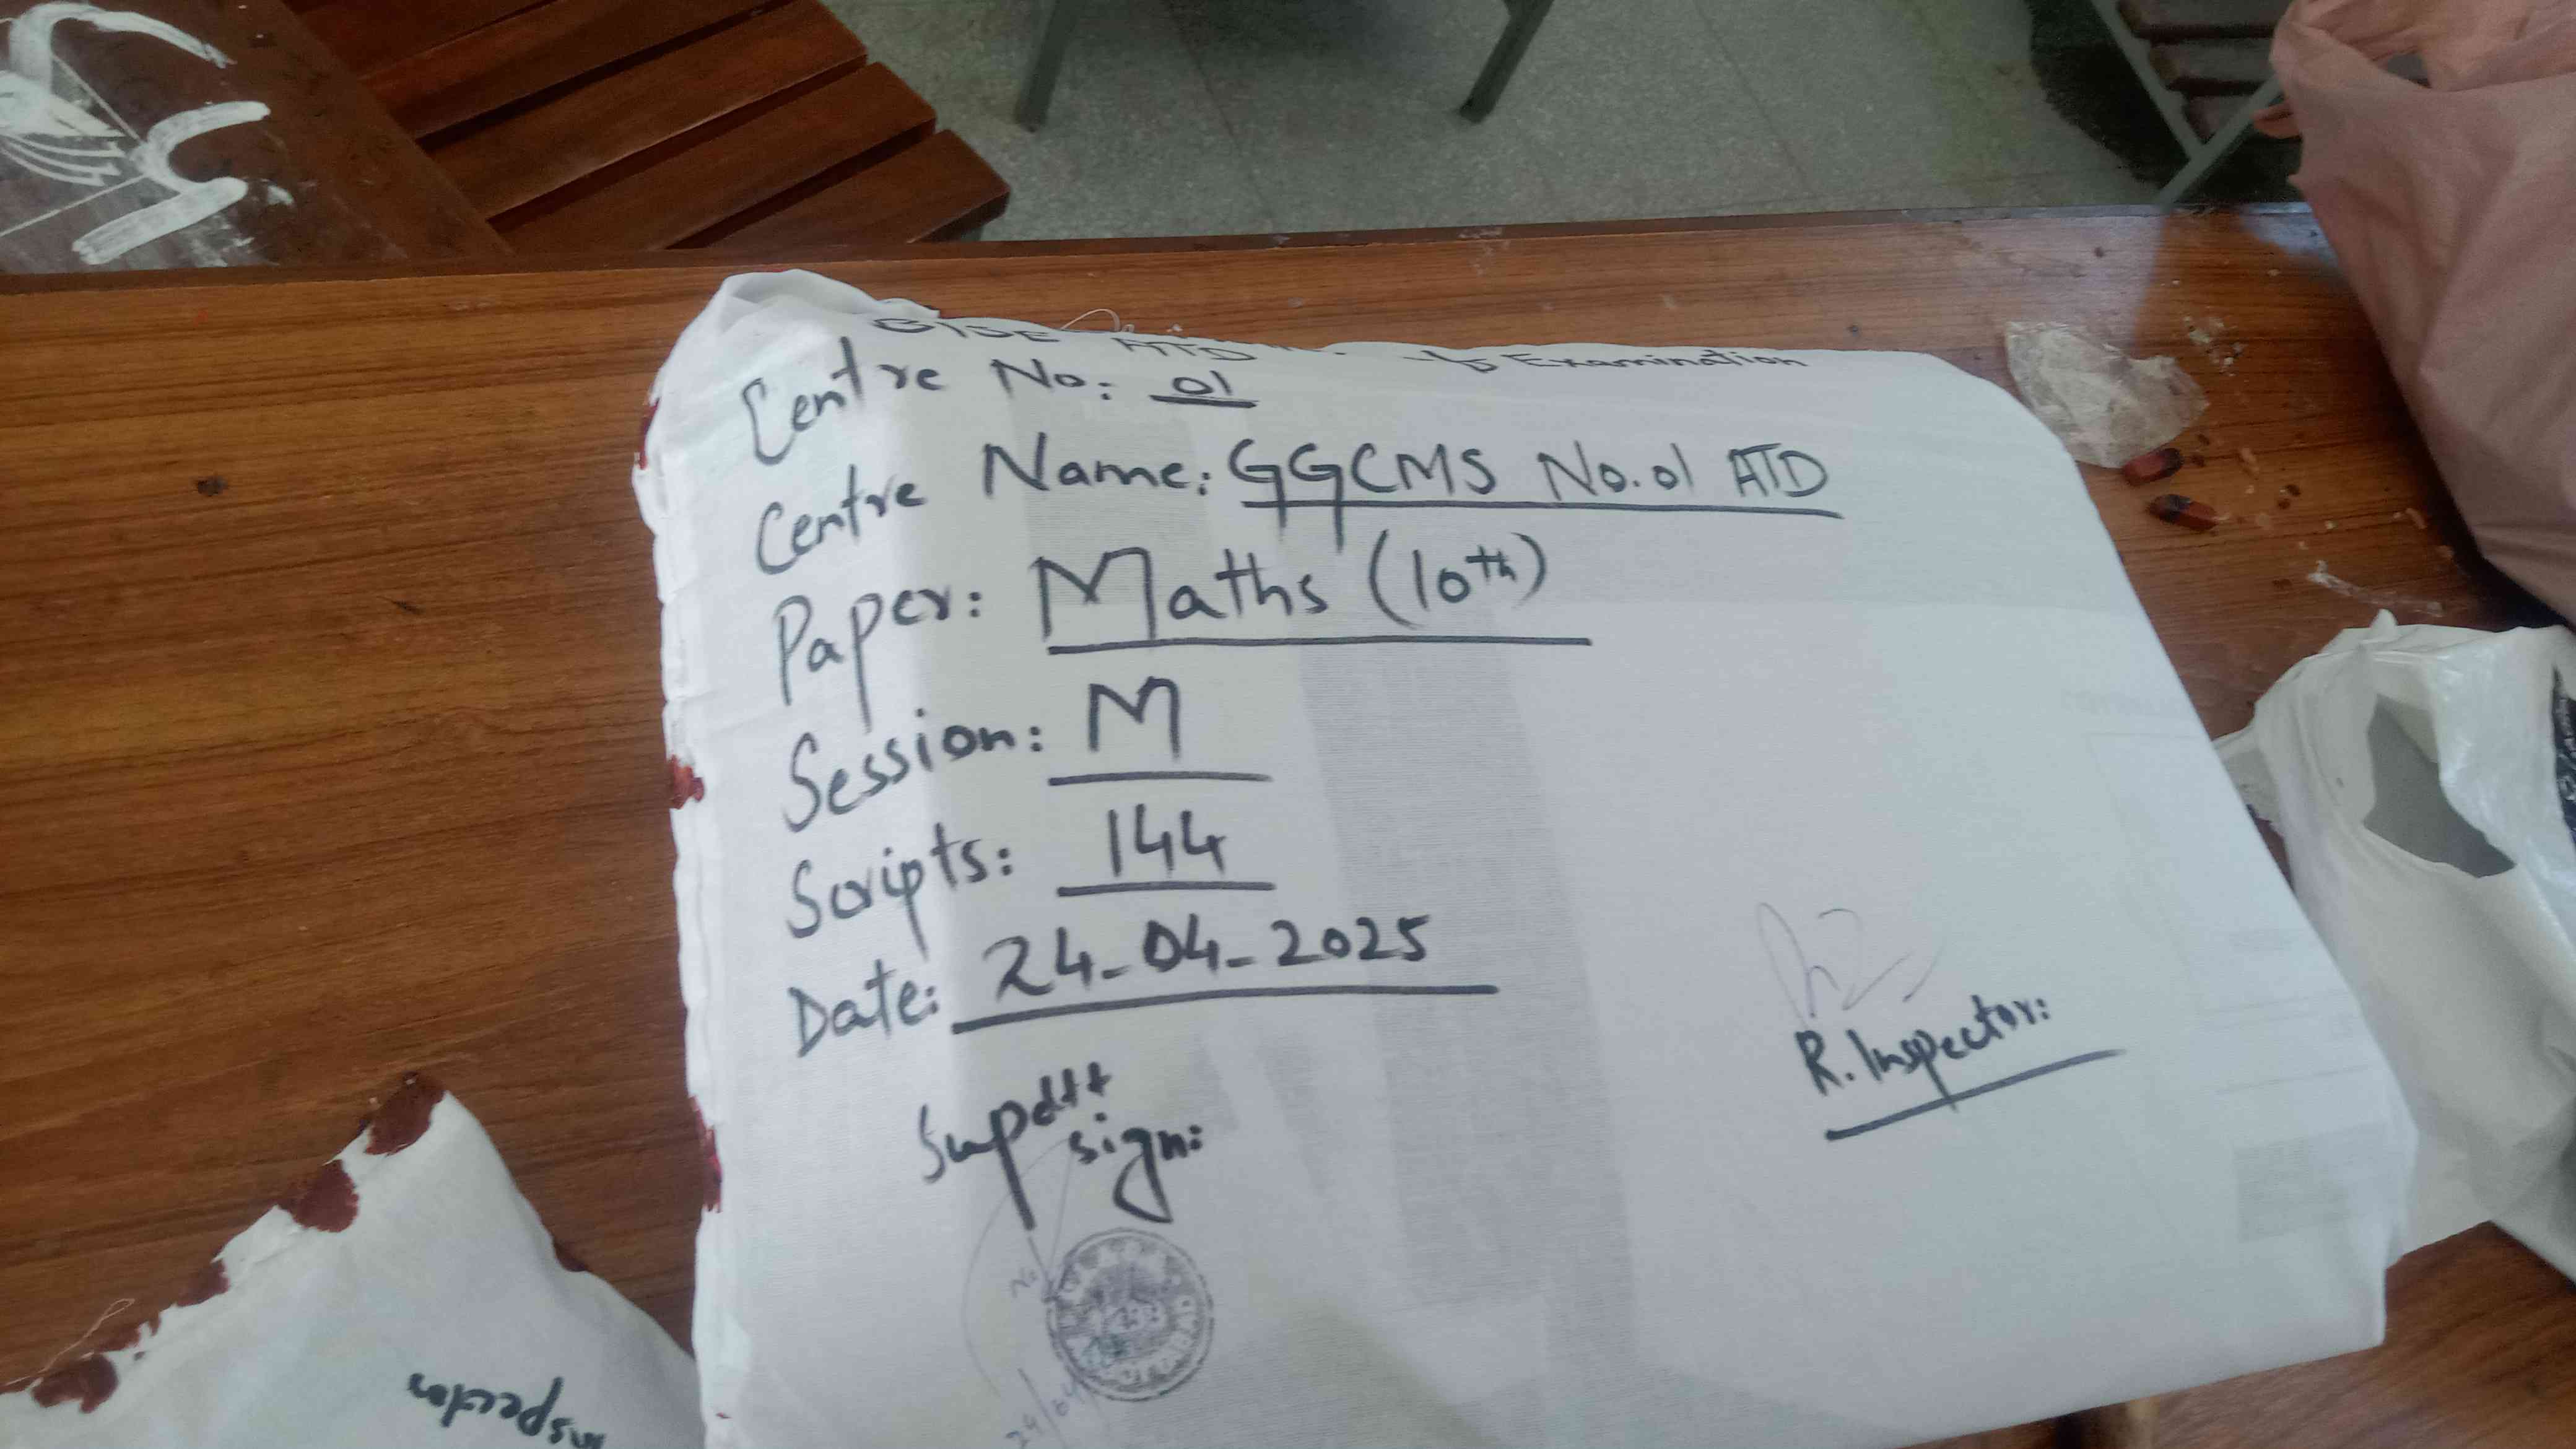 BISE ATD Examination
Centre No: 01
Centre Name: GGCMS No.01 ATD
Paper: Maths (10th)
Session: M
Scripts: 144
Date: 24-04-2025
R. Inspector:
Supdtt
sign:
nspector